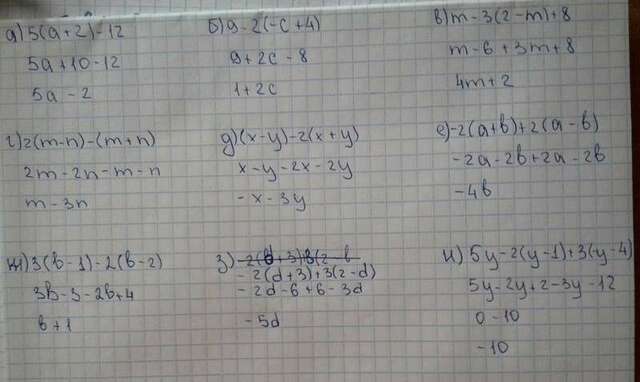 а) 5(a+2)-12
5a+10-12
5a-2
б) 9-2(-c+4)
9+2c-8
1+2c
в) m-3(2-m)+8
m-6+3m+8
4m+2
г) 2(m-n)-(m+n)
2m-2n-m-n
m-3n
д) (x-y)-2(x+y)
x-y-2x-2y
-x-3y
е) -2(a+b)+2(a-b)
-2a-2b+2a-2b
-4b
ж) 3(b-1)-2(b-2)
3b-3-2b+4
b+1
з)
-2(d+3)+3(2-d)
-2d-6+6-3d
-5d
и) 5y-2(y-1)+3(y-4)
5y-2y+2-3y-12
0-10
-10